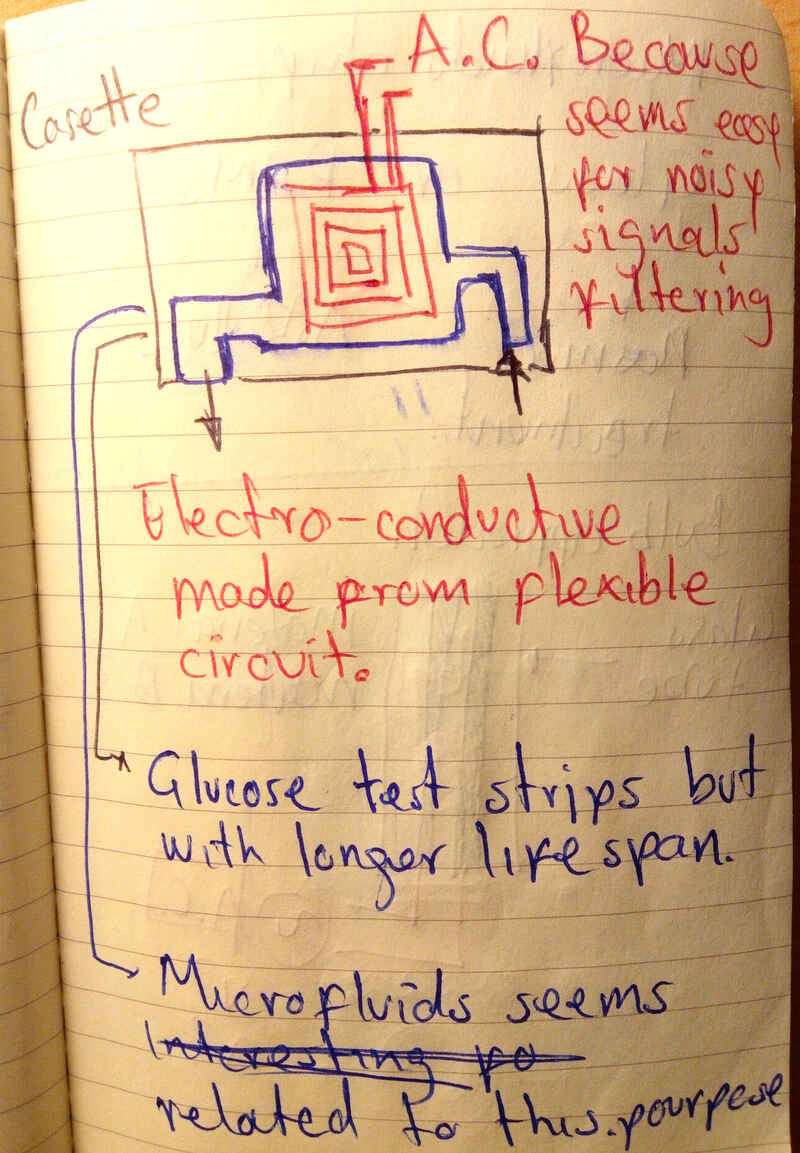 Casette
A.C. Becouse
seems easy
for noisy
signals
filtering
Electro-conductive
made from flexible
circuit.
Glucose test strips but
with longer life span.
Microfluids seems
Interesting fo
related to this. pourpese